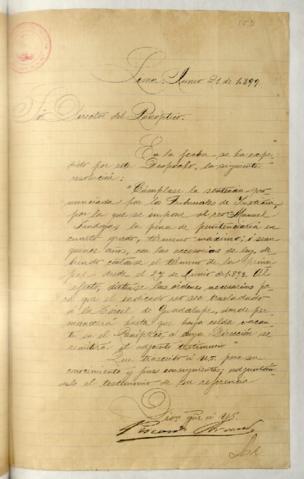 Lima, Junio 21 de 1899
Sr. Director del Panóptico.
En la fecha se ha expe-
dido por este Despacho, la siguiente
resolución:
"Cúmplase la sentencia pro-
nunciada por los Tribunales de Justicia,
por la que se impone al reo Manuel
la pena de penitenciaría en
cuarto grado, término máximo, ó sean
quince años, con las accesorias de ley, de-
biendo contarse el término de la princi-
pal desde el 27 de Junio de 1892. Al
efecto, díctense las órdenes necesarias pa-
ra que el indicado reo sea trasladado
á la Cárcel de Guadalupe, donde per-
manecerá hasta que haya celda vacan-
te en el Panóptico, á cuya Dirección se
remitirá el adjunto testimonio"
Que trascribo á US. para su
conocimiento y fines consiguientes, adjuntán-
dole el testimonio de su referencia
Dios gue. á US.